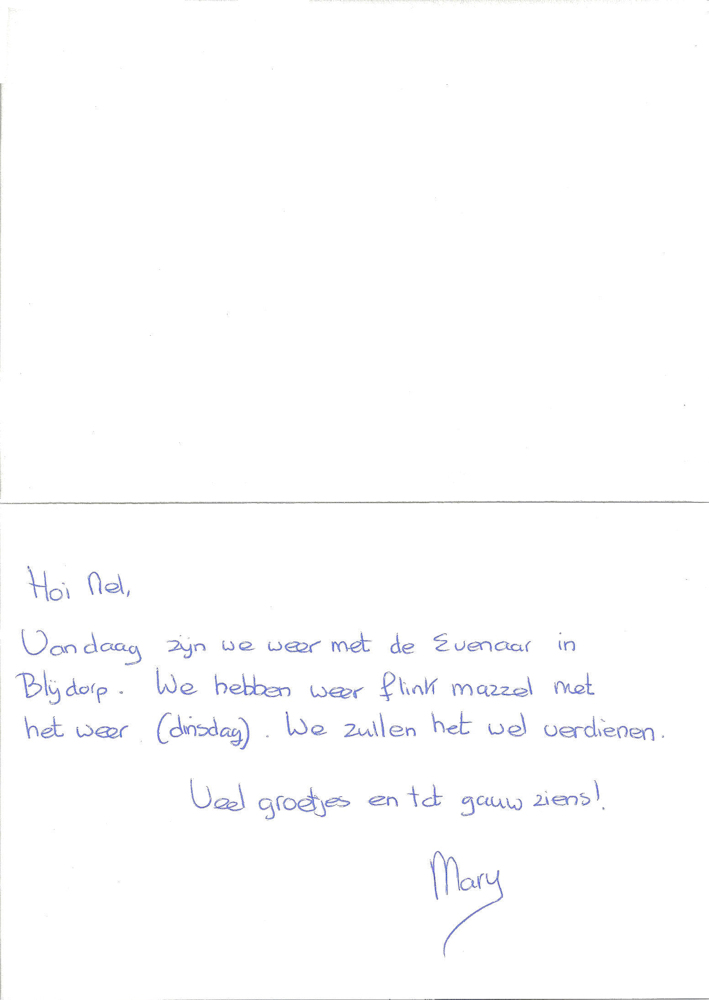 Hoi Nel,
Vandaag zijn we weer met de Evenaar in
Blijdorp. We hebben weer flink mazzel met
het weer (dinsdag). We zullen het wel verdienen.
Veel groetjes en tot gauw ziens!
Mary